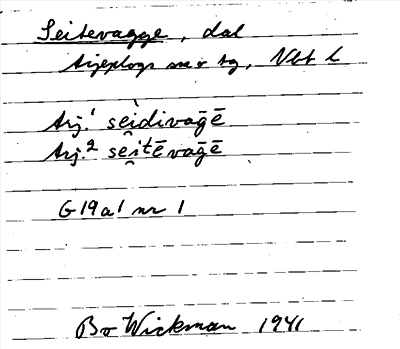 Seitevagge, dal
Arjeplogs sn o tg, Vbt l
Arj.¹ sei̯diva̅ḡē
Arj.² sei̯tēva̅ḡē
G 19 a 1 nr 1
Bo Wickman 1941